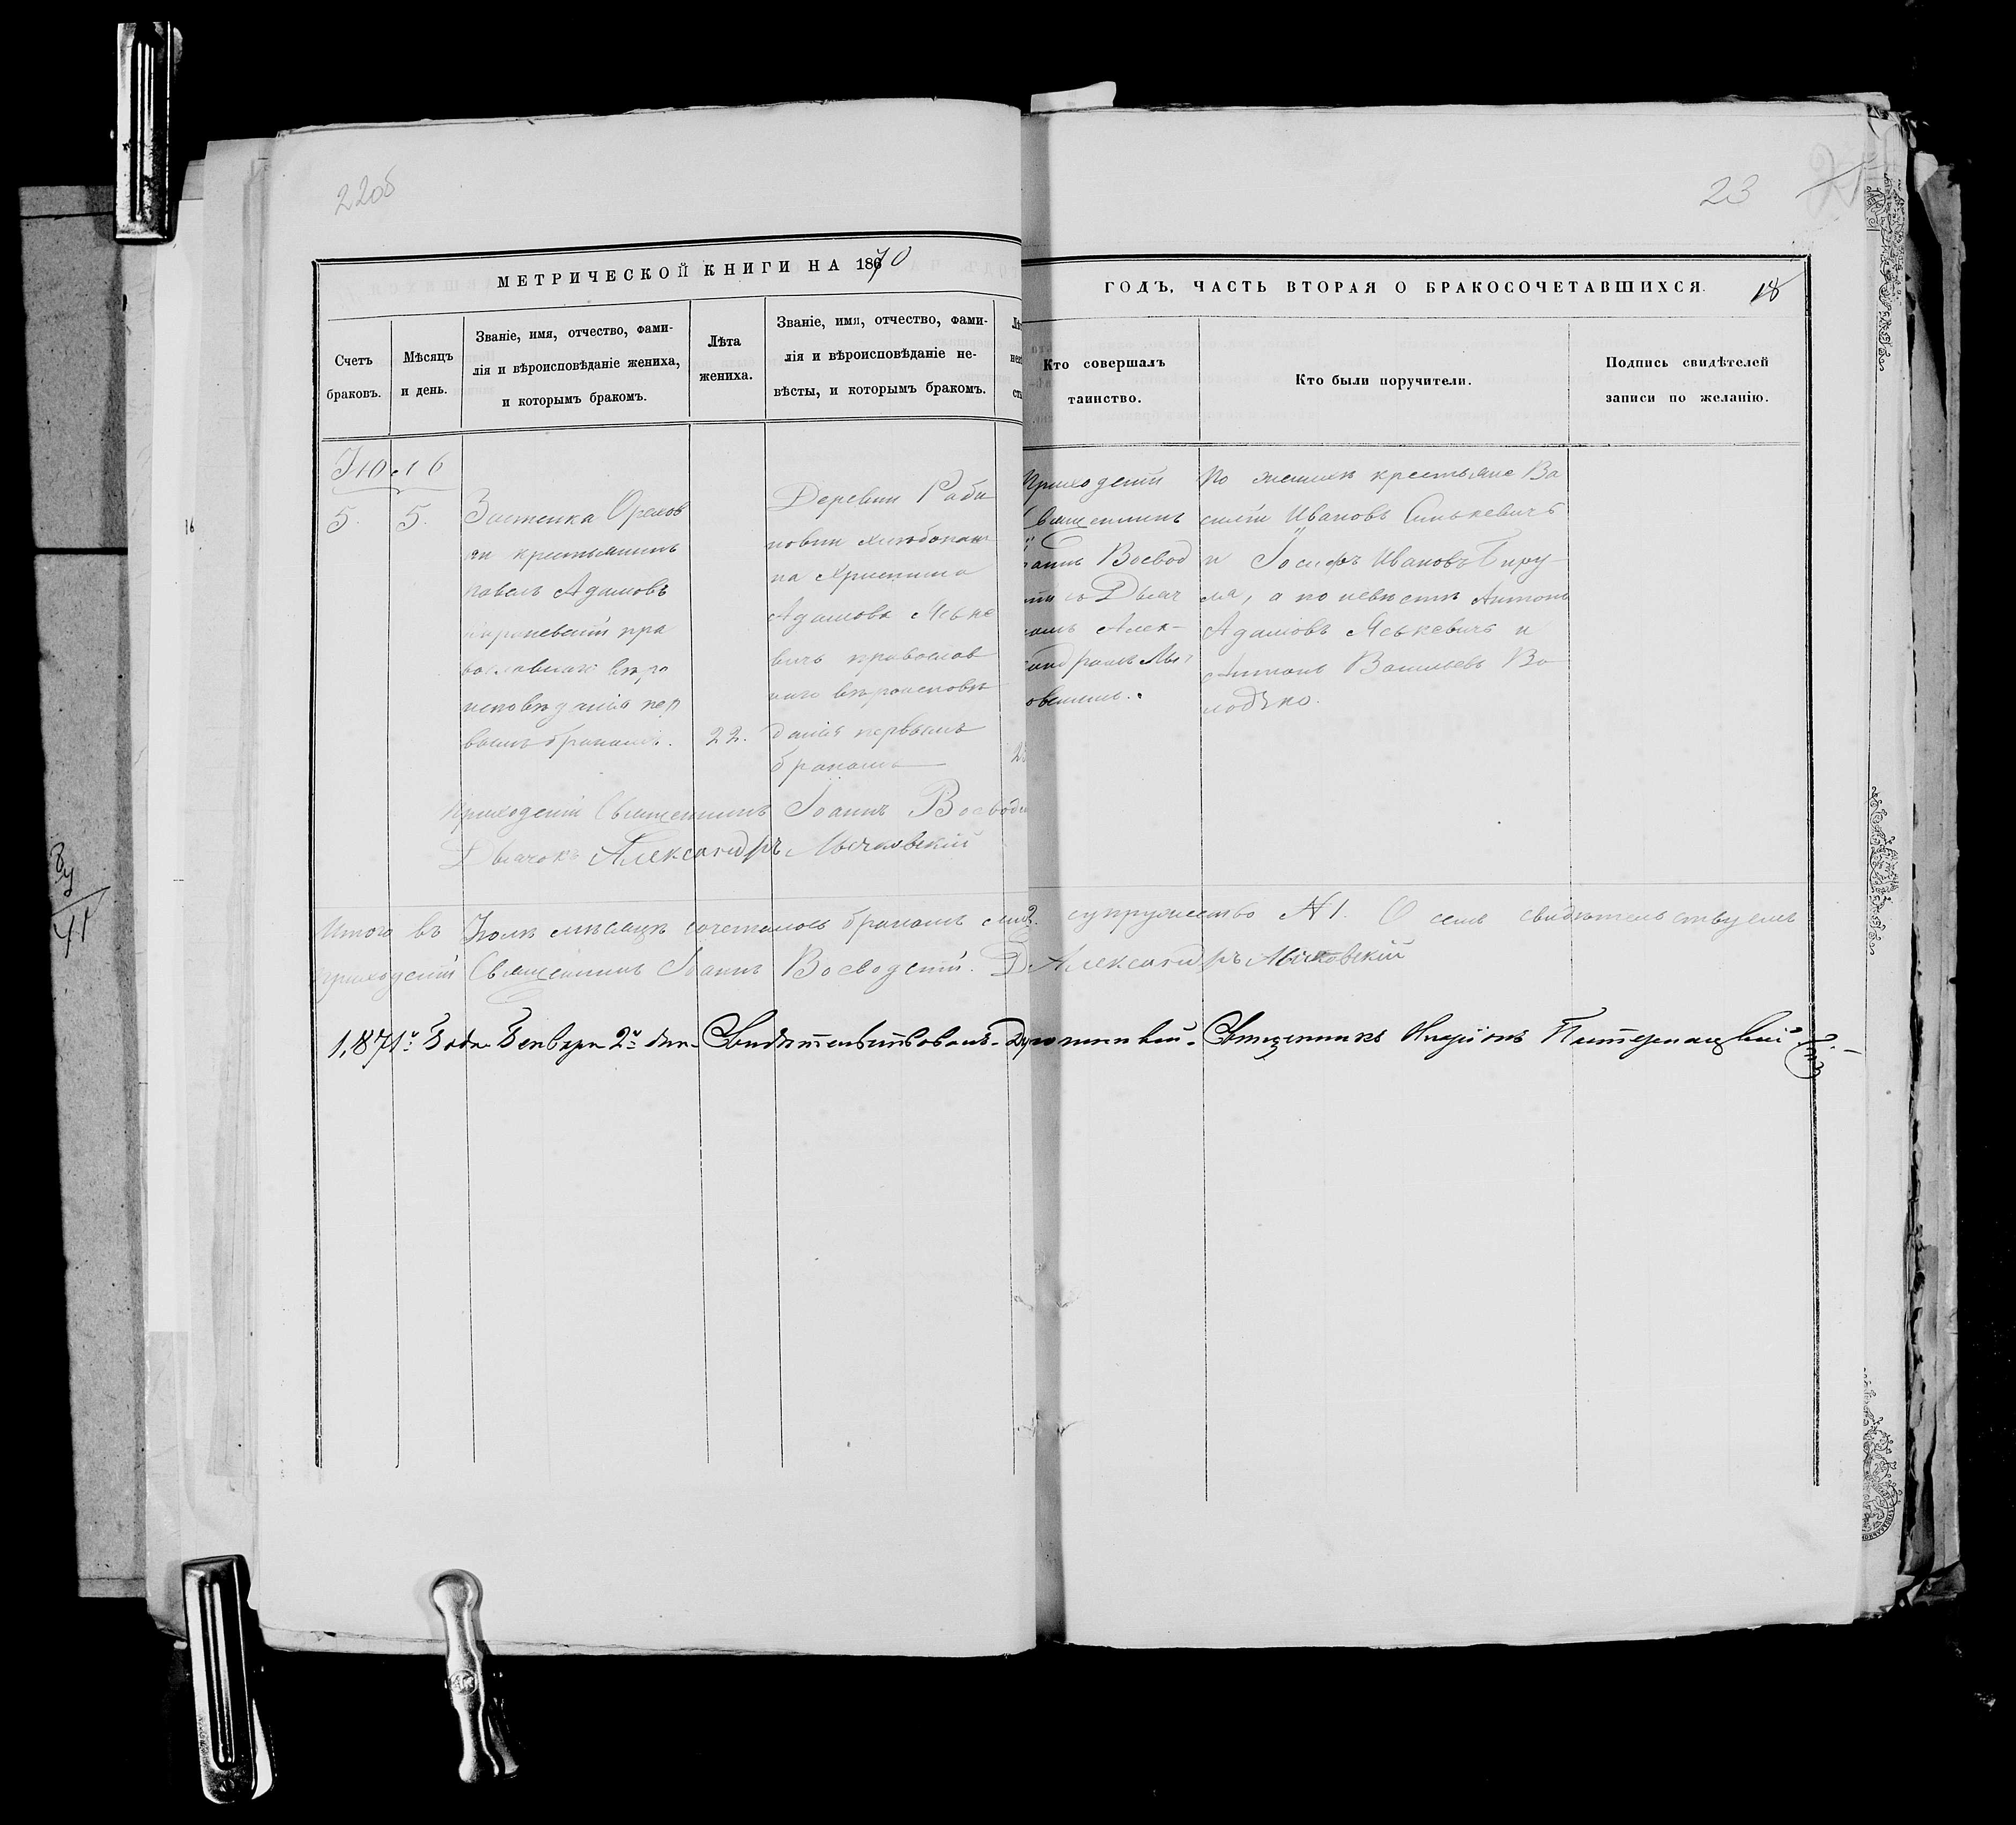 22об
23
МЕТРИЧЕСКОЙ КНИГИ НА 1870
ГОДЪ, ЧАСТЬ ВТОРАЯ О БРАКОСОЧЕТАВШИХСЯ.
18
Счетъ
браковъ.
Мѣсяцъ
и день.
Званіе, имя, отчество, фами-
лія и вѣроисповѣданіе жениха,
и которымъ бракомъ.
Лѣта
жениха.
Званіе, имя, отчество, фами-
лія и вѣроисповѣданіе не-
вѣсты, и которымъ бракомъ.
Кто совершалъ
таинство.
Кто были поручители.
Подпись свидѣтелей
записи по желанію.
5.
5.
Застенка Орехов
крестьянинъ
Павелъ Адамовъ
пра
вославнаго вѣро
исповѣданія пер
вымъ бракомъ.
22.
Деревни Раби
новки
на Христина
Адамова Яське
вичъ православ
наго вѣроисповѣ
данія первымъ
бракомъ
Приходскій
Священникъ
Іоаннъ Воевод
скій съ Дьяч
комъ Алек-
сандромъ Мыч
ковскимъ.
По женихѣ крестьяне Ва
силій Ивановъ Синкевичъ
и Іосифъ Ивановъ Биру-
ля, а по невѣстѣ Антонъ
Адамовъ Яськевичъ и
Антонъ Васильевъ Во
лодько.
Приходскій Священникъ Іоаннъ Воеводскій
Дьячокъ Александръ Мычковскій
Итого въ Іюлѣ мѣсяцѣ сочеталось бракомъ супружество №1. О семъ свидѣтельствуемъ
Приходскій Священникъ Іоаннъ Воеводскій. Д. Александръ Мычковскій
1871го Года Генваря 2го дня Свидѣтельствовалъ Духовникъ Священникъ
84
41
16